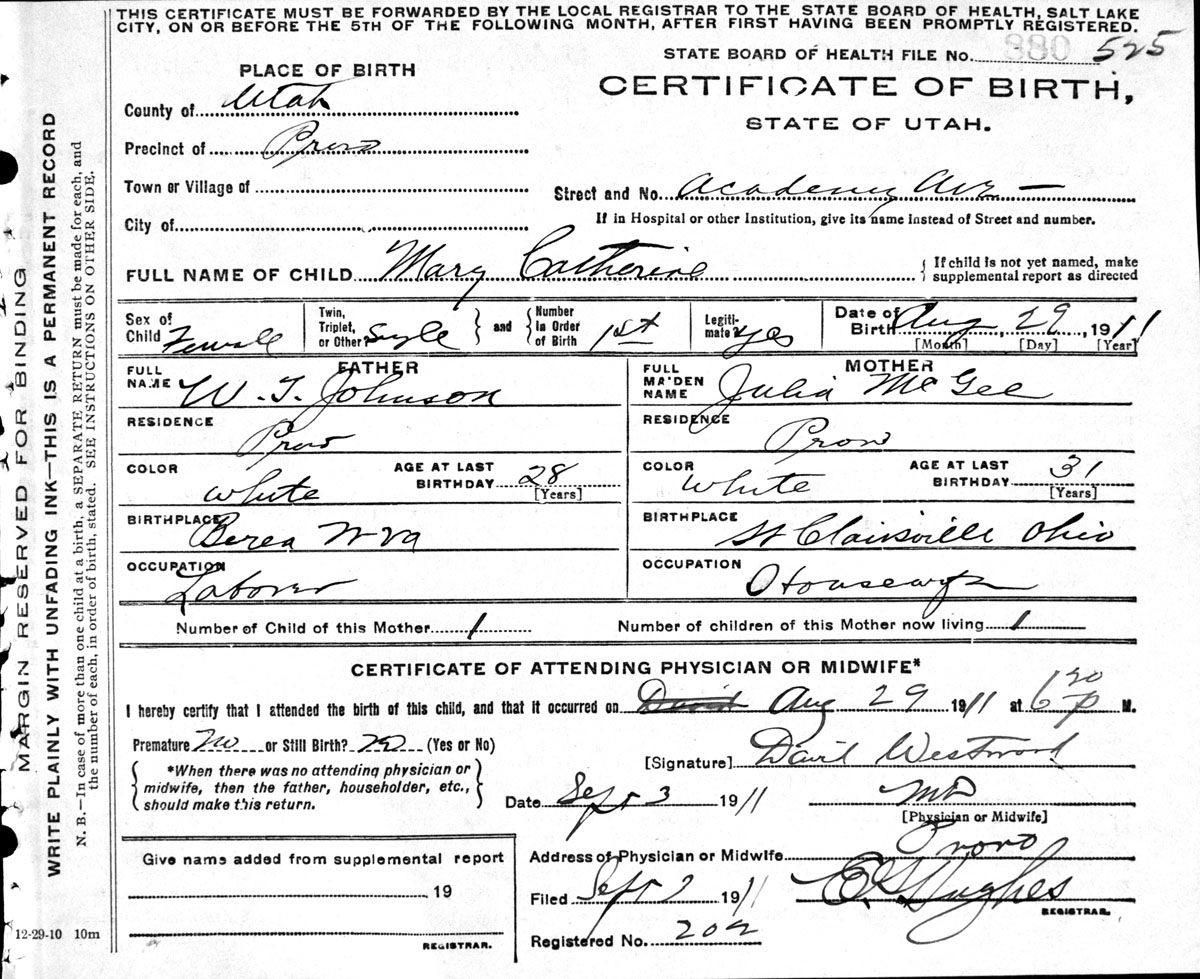 THIS CERTIFICATE MUST BE FORWARDED BY THE LOCAL REGISTRAR TO THE STATE BOARD OF HEALTH, SALT LAKE
CITY, ON OR BEFORE THE 5TH OF THE FOLLOWING MONTH, AFTER FIRST HAVING BEEN PROMPTLY REGISTERED.
STATE BOARD OF HEALTH FILE No. 380 525
PLACE OF BIRTH
CERTIFICATE OF BIRTH,
STATE OF UTAH.
County of Utah
Precinct of Provo
Town or Village of
Street and No. Academy Ave —
If in Hospital or other Institution, give its name instead of Street and number.
City of
FULL NAME OF CHILD Mary Catherine
If child is not yet named, make
supplemental report as directed
Sex of
Child Female
Twin,
Triplet,
or Other? Single
and
Number
in Order
of Birth 1st
Legiti-
mate? Yes
Date of
Birth Aug 29, 1911
[Month] [Day] [Year]
FATHER
FULL
NAME W. T. Johnson
RESIDENCE
Provo
COLOR
White
AGE AT LAST
BIRTHDAY 28
[Years]
BIRTHPLACE
Berea W Va
OCCUPATION
Laborer
MOTHER
FULL
MAIDEN
NAME Julia McGee
RESIDENCE
Provo
COLOR
White
AGE AT LAST
BIRTHDAY 31
[Years]
BIRTHPLACE
St Clairsville Ohio
OCCUPATION
Housewife
Number of Child of this Mother 1
Number of children of this Mother now living 1
CERTIFICATE OF ATTENDING PHYSICIAN OR MIDWIFE*
I hereby certify that I attended the birth of this child, and that it occurred on David Aug 29 1911 at 6 30 P M.
Premature No or Still Birth? No (Yes or No)
*When there was no attending physician or
midwife, then the father, householder, etc.,
should make this return.
[Signature] David Westwood
Date Sept 3 1911 MD
[Physician or Midwife]
Give name added from supplemental report
19
REGISTRAR.
Address of Physician or Midwife Provo
Filed Sept 1911 Hughes
REGISTRAR.
Registered No. 202
MARGIN RESERVED FOR BINDING
WRITE PLAINLY WITH UNFADING INK—THIS IS A PERMANENT RECORD
N. B.—In case of more than one child at a birth, a SEPARATE RETURN must be made for each, and
the number of each, in order of birth, stated. SEE INSTRUCTIONS ON OTHER SIDE.
12-29-10 10m